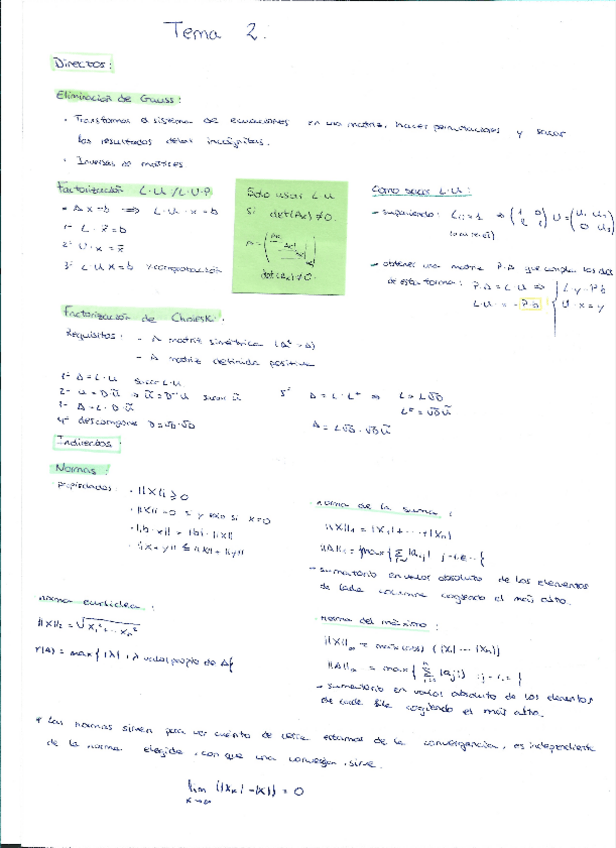 Tema 2.
Directos:
Eliminación de Gauss:
· Transformar a sistema de ecuaciones en una matriz, hacer permutaciones y sacar
los resultados de las incógnitas.
· Inversas de matrices
Factorización L·U / L·U·P
- Ax=b ⟹ L·U·x=b
1º L·z=b
2º U·x=z
3º L U X=b comprobación
Solo usar L U
si det(Ak)≠0.
det(Ak)≠0.
Como sacar L·U:
- suponiendo: Lii=1
- obtener una matriz P·A que cumpla
de esta forma: P·A=L·U ⟹ L·y=P·b
L·U·x=P·b U·x=y
Factorización de Cholesk.
Requisitos: - A matriz simétrica (Aᵗ=A)
- A matriz definida positiva
1º A=L·U sacar L·U
3º A=L·D·ũ
4º descompone D=√D·√D
5º A=L·Lᵗ ⟹ L=L√D
Lᵗ=√Dũ
A=L√D·√Dũ
Indirectos:
Normas:
propiedades: · ||X|| ≥ 0
· ||X||=0 y solo si x=0
· ||b·x||=|b|·||x||
· ||x+y|| ≤ ||x||+||y||
norma de la suma:
||X||₁=|X₁|+...+|Xn|
- sumatorio en valor absoluto de los elementos
de cada columna cogiendo el más alto.
norma euclidea:
||X||₂=√X₁²+...Xn²
r(A)=max{|λ|: λ valor propio de A}
norma del máximo:
- sumatorio en valor absoluto de los elementos
de cada fila cogiendo el más alto.
* Las normas sirven para ver cuánto de cerca estamos de la convergencia, es independiente
de la norma elegida, con que una converja, sirve.